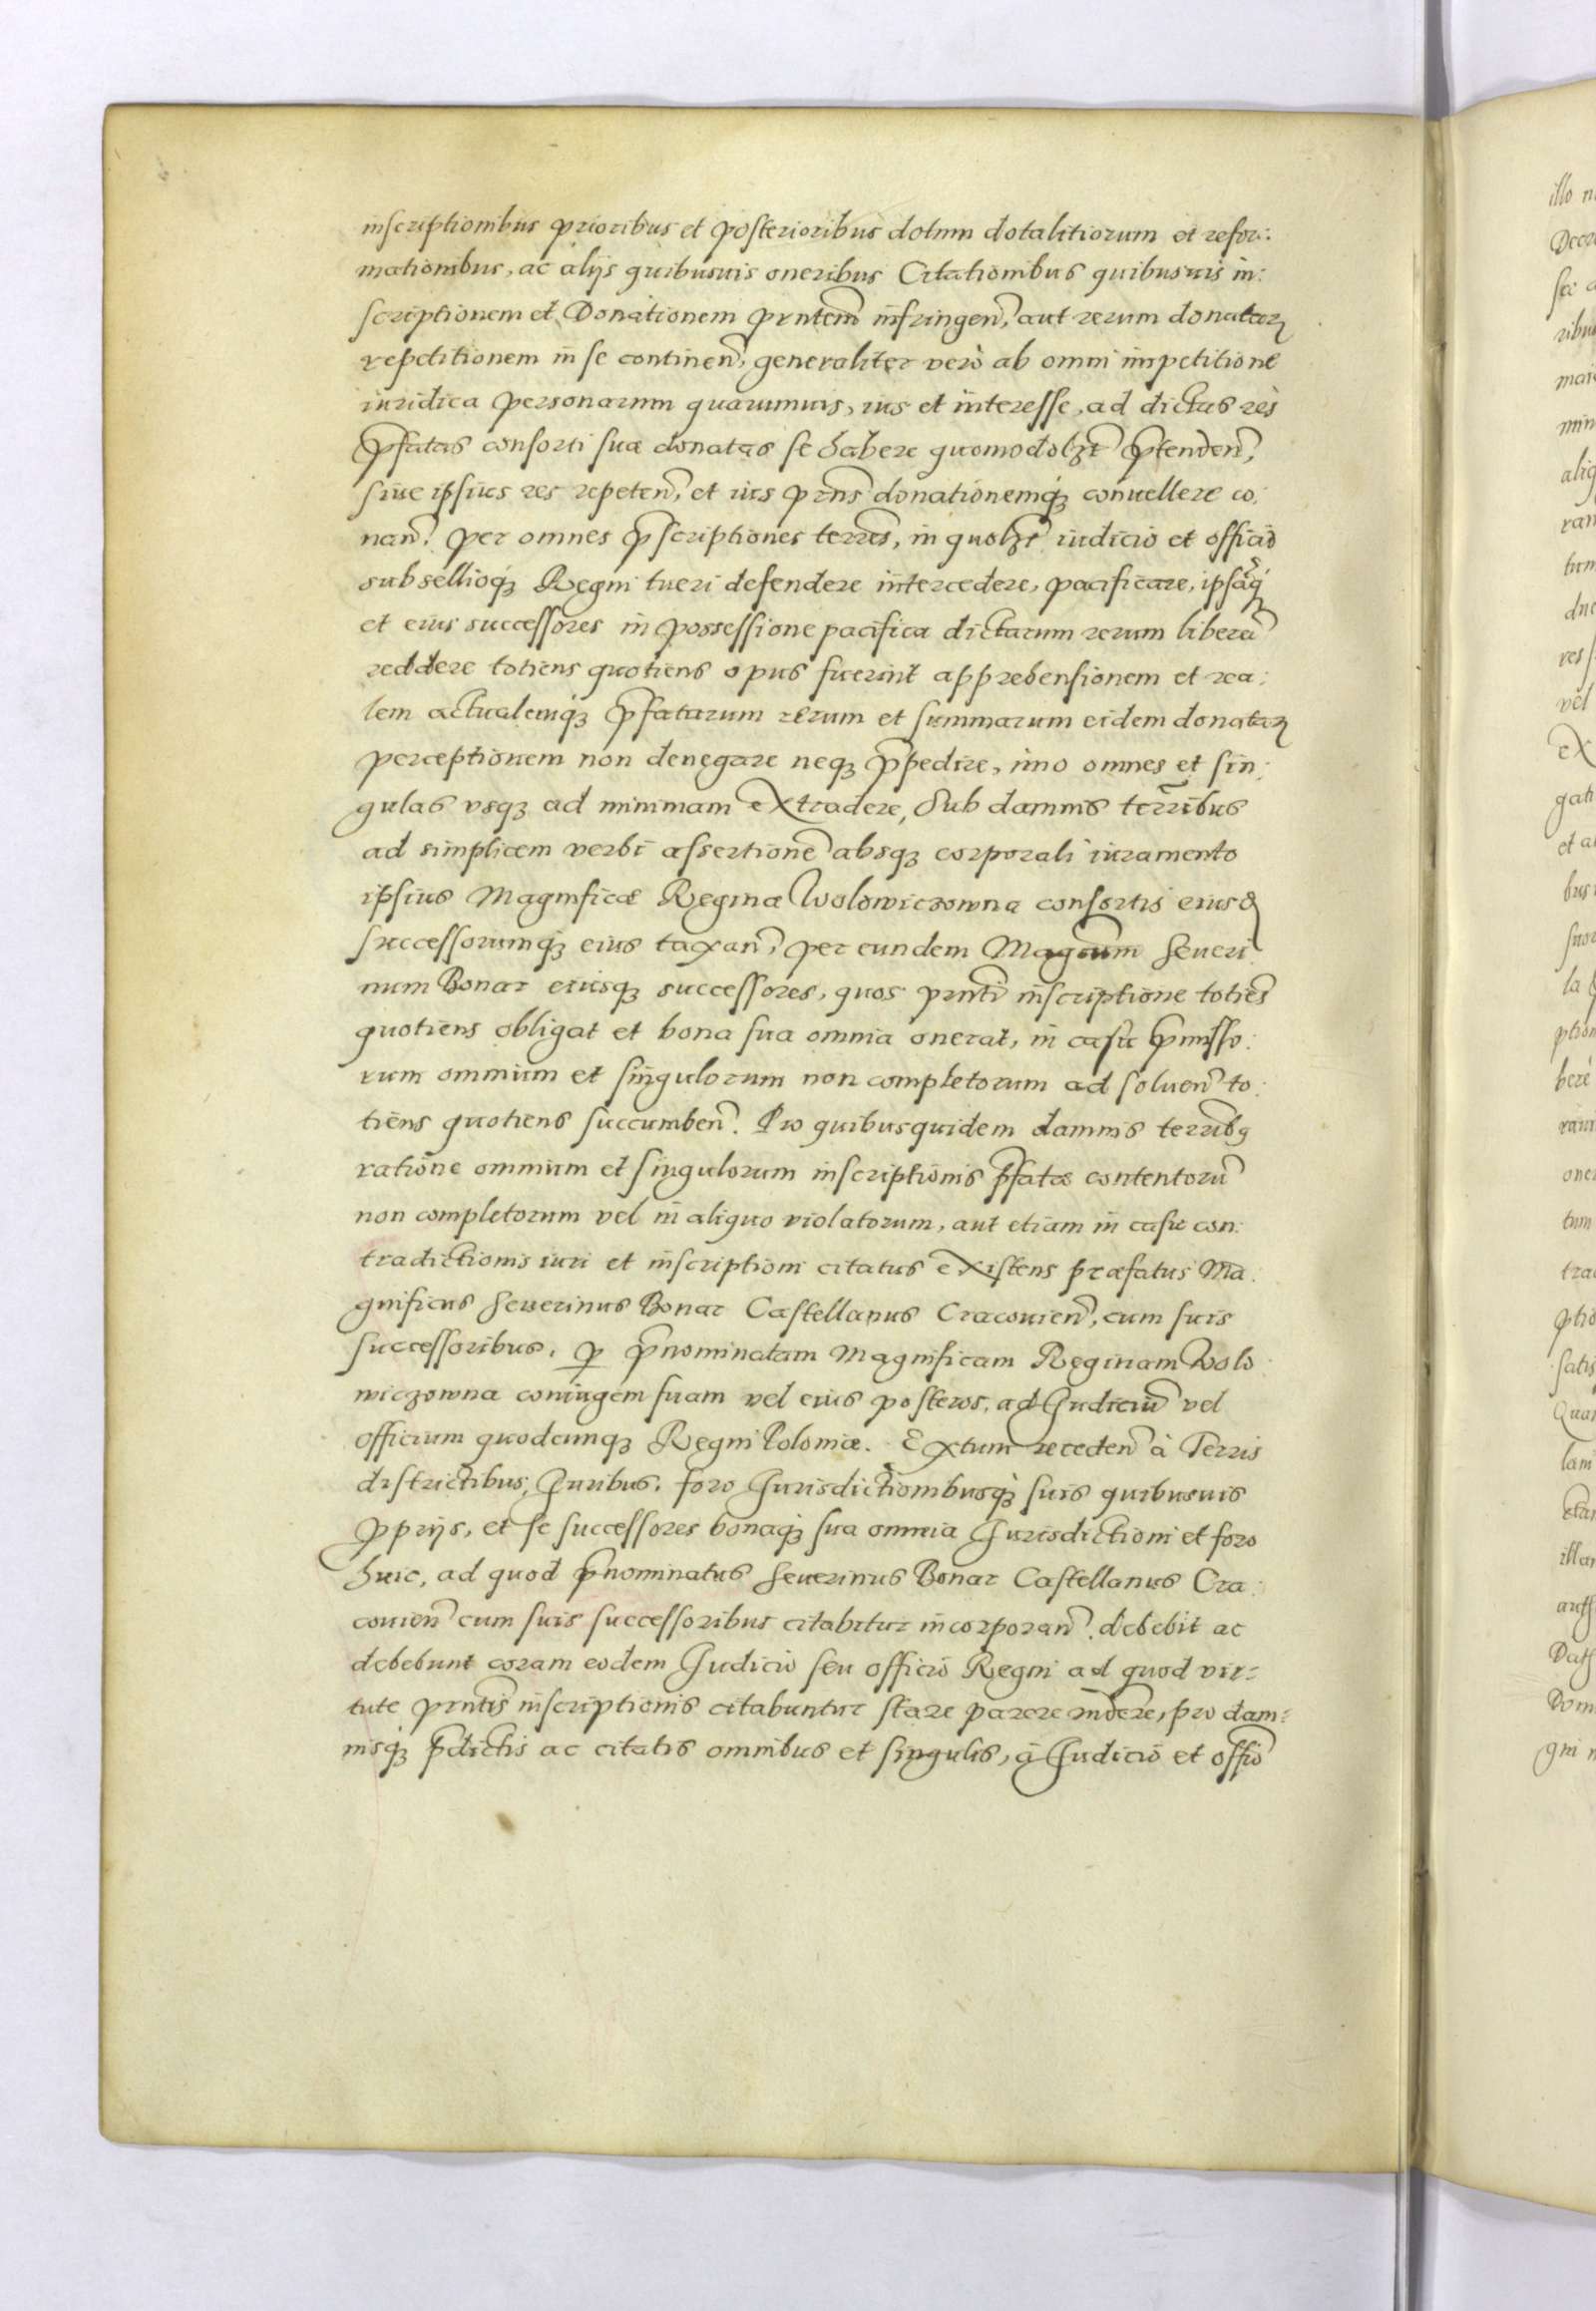 inscriptionibus prioribus et posterioribus dotum dotalitiorum et refor:
mationibus, ac alijs quibusuis oneribus Citationibus quibusuis in:
scriptionem et Donationem prntem̃ infringen̄, aut rerum donatarꝝ
repetitionem in se continen̄, generaliter verò ab omni impetitione
iuridica personarum quarumuis, ius et interesse, ad dictas res
p̄fatas consorti suæ donatas se habere quomodolꝫt p̄tenden̄,
siue ipsius res repeten̄, et ius prns̄ donationemqꝫ conuellere co:
nan̄. Per omnes p̄scriptiones terres̄, in quolꝫt iudicio et officio
subsellioqꝫ Regni tueri defendere intercedere, pacificare, ipsāqꝫ
et eius successores in possessione pacifica dictarum rerum liberā
reddere totiens quotiens opus fuerint apprehensionem et rea:
lem actualemqꝫ p̄fatarum rerum et summarum eidem donatarꝝ
perceptionem non denegare neqꝫ p̄pedire, imo omnes et sin:
gulas vsqꝫ ad minimam extradere, Sub damnis terrībus
ad simplicem verbi assertionē absqꝫ corporali iuramento
ipsius Magnificæ Reginæ Wolowiczowna consortis eiusd
successorumqꝫ eius taxan̄, per eundem Magcum̄ Seueri:
num Bonar eiusqꝫ successores, quos prnti̅ inscriptione toties̄
quotiens obligat et bona sua omnia onerat, in casu p̄misso:
rum omnium et singulorum non completorum ad soluen̄ to:
tiens quotiens succumben̄. Pro quibusquidem damnis terrībꝰ
ratione omnium et singulorum inscriptionis p̄fatæ contentorū
non completorum vel in aliquo violatorum, aut etiam in casu con:
tradictionis iuri et inscriptioni citatus existens præfatus Ma:
gnificus Seuerinus Bonar Castellanus Cracouien̄, cum suis
successoribus, ꝑ p̄nominatam Magnificam Reginam Wolo:
wiczowna coniugem suam vel eius posteros, ad Iudiciū vel
officium quodcunqꝫ Regni Poloniæ. Extum receden̄ à Terris
districtibus, Iuribus, foro Iurisdictionibusqꝫ suis quibusuis
ꝓprijs, et se successores bonaqꝫ sua omnia Iurisdictioni et foro
huic, ad quod p̄nominatus Seuerinus Bonar Castellanus Cra:
couien̄ cum suis successoribus citabitur incorporan̄. debebit ac
debebunt coram eodem Iudicio seu officio Regni ad quod vir:
tute prntis̄ inscriptionis citabuntur stare parere rn̄dere, pro dam:
nisqꝫ p̄dictis ac citatis omnibus et singulis, à Iudicio et offiō